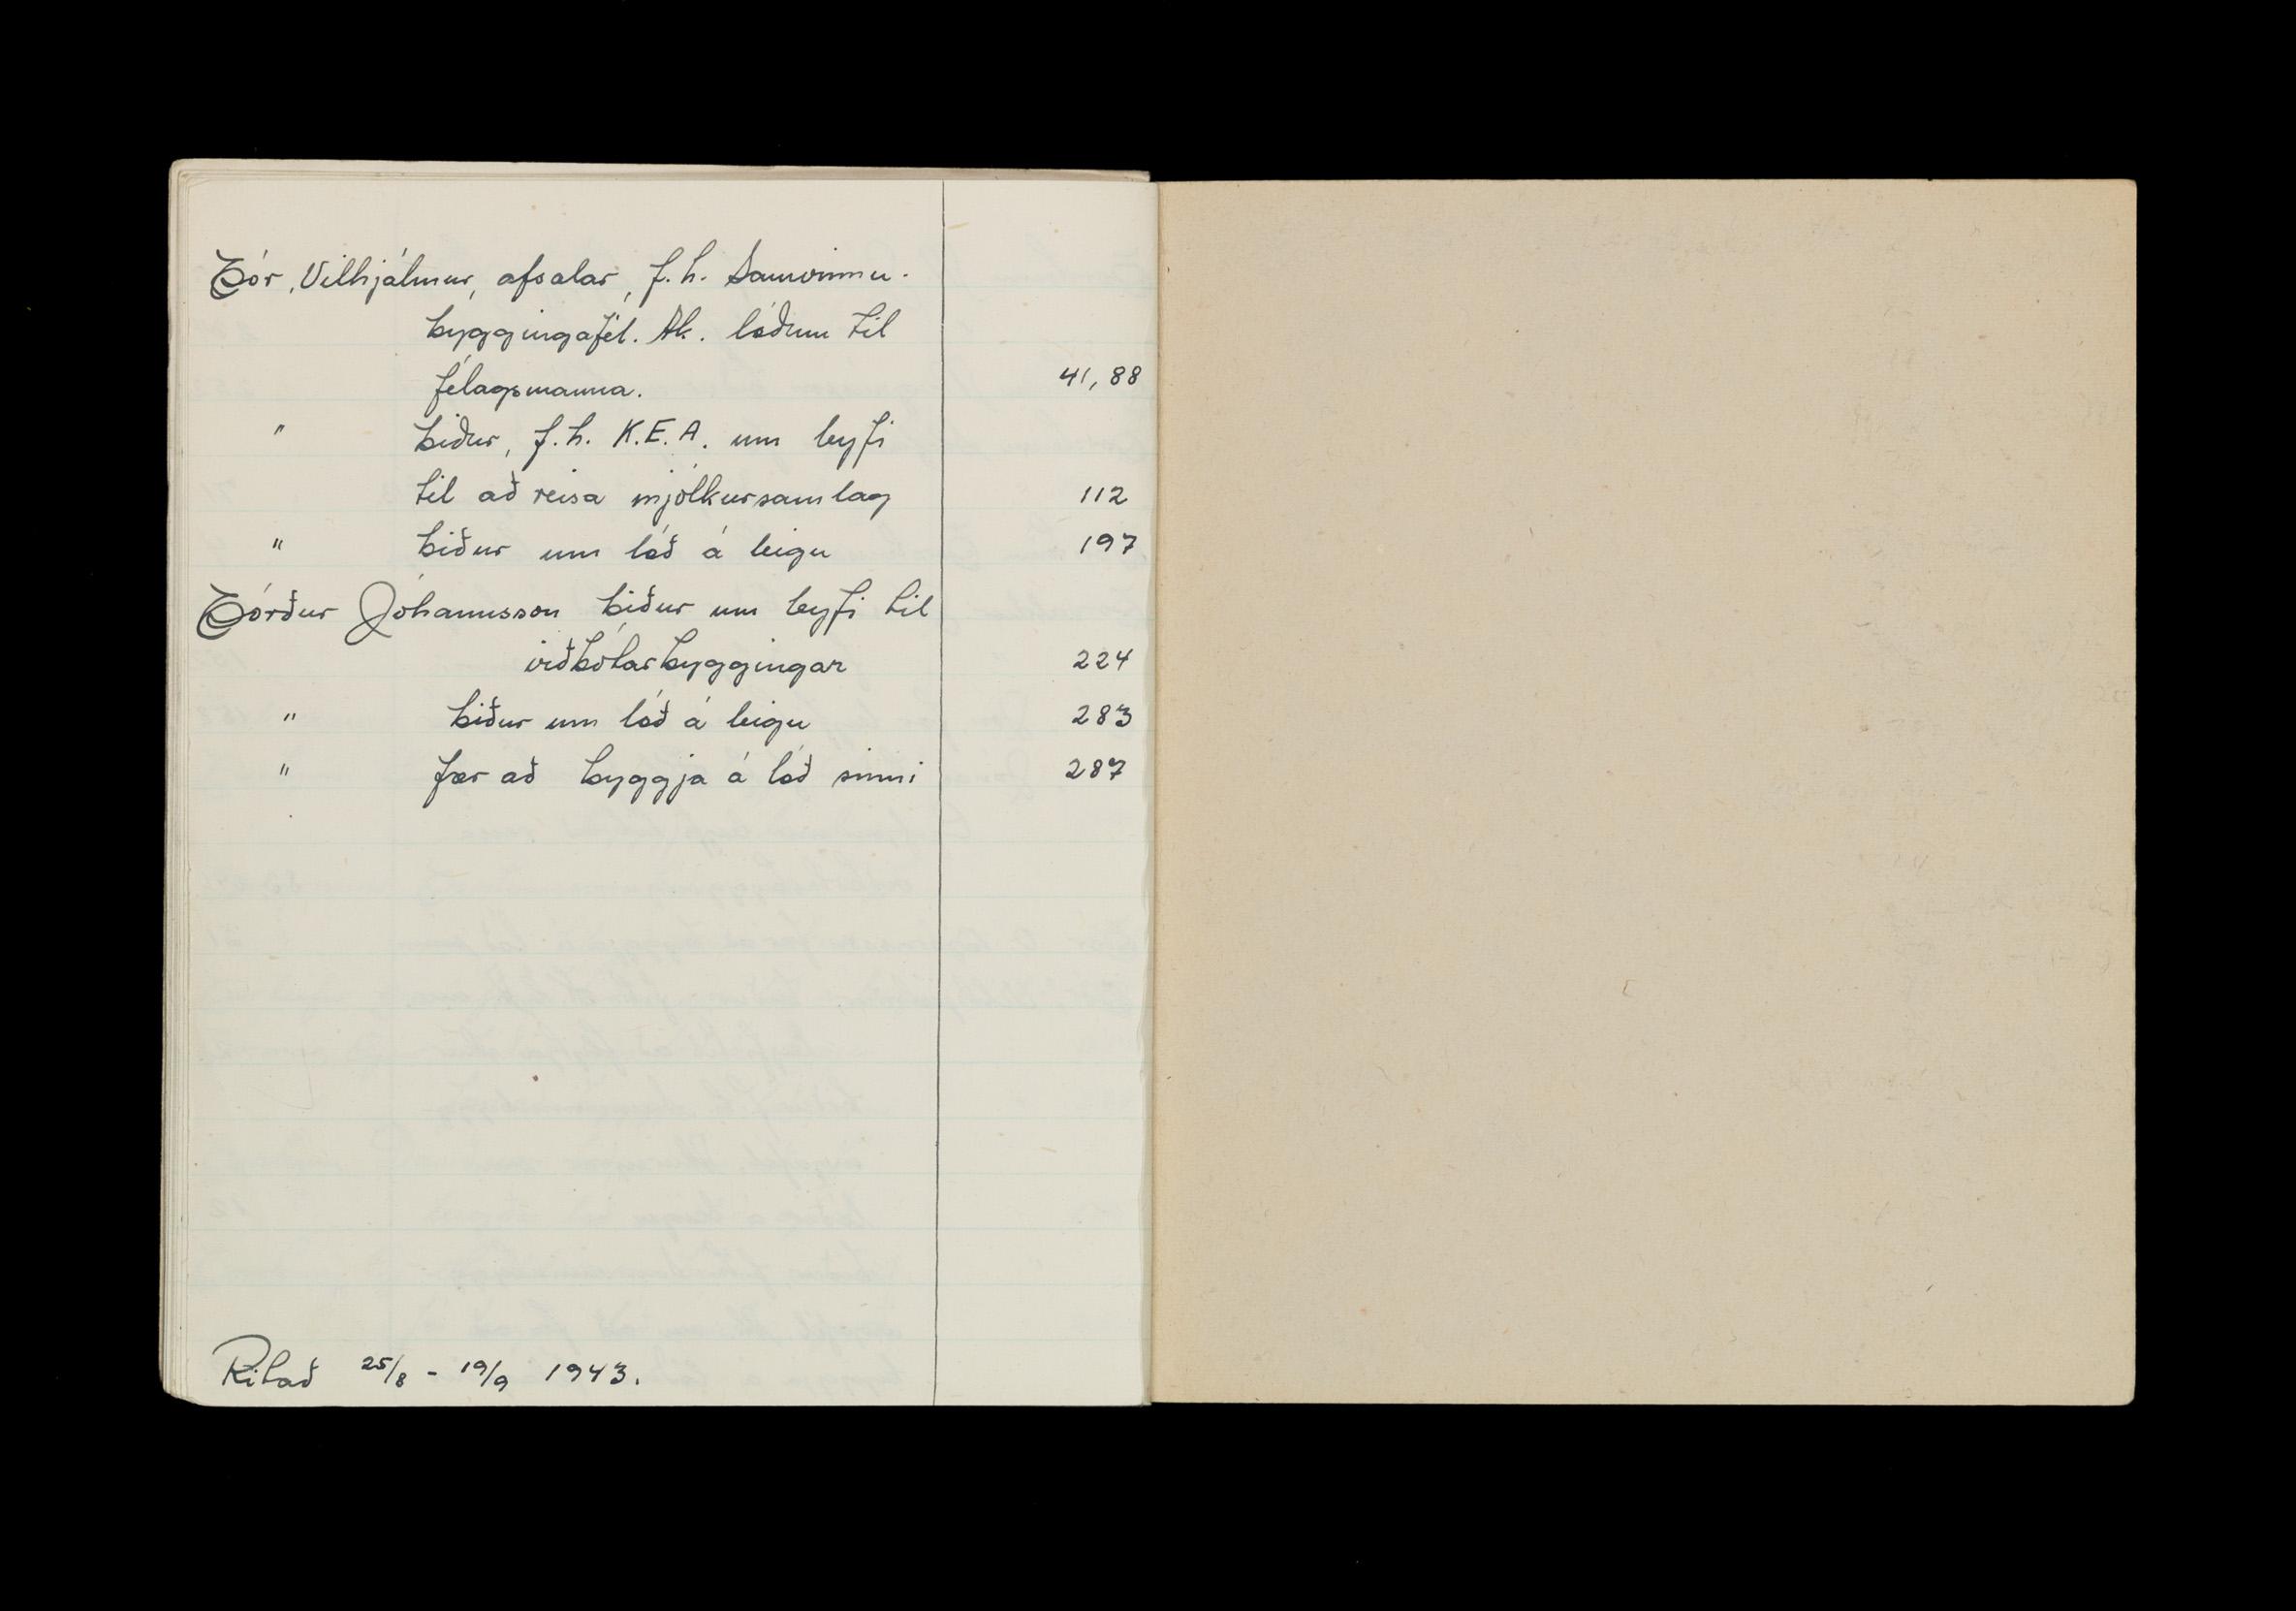 Þór, Vilhjálmur, afsalar, f.h. Samvinnu-
byggingafél. Ak. lóðum til
félagsmanna. 41, 88
" biður, f.h. K.E.A. um leyfi
til að reisa mjólkursamlag 112
" biður um lóð á leigu 197
Þórður Jóhannsson biður um leyfi til
viðbótarbyggingar 224
" biður um lóð á leigu 283
" fær að byggja á lóð sinni 287
Ritað 25/8 - 19/9 1943.